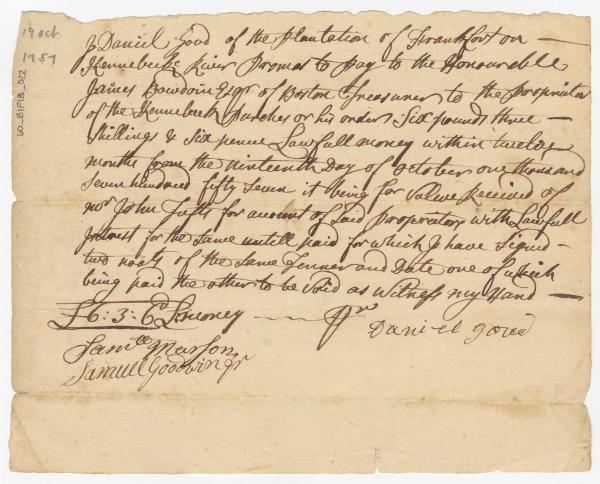 19 oct.
1757
60_B1F13_022
J Daniel Good of the Plantation of Frankfort on —
Kennebeck River Promas to pay to the Honourable
James Bowdoin Esqr of Boston Treasurer to the Propriators
of the Kennebeck Purches or his order Six pounds three —
Shillings & Six penne Lawfull money within twelve
months from the nineteenth Day of October one thousand
Seven hundred fifty Seven it being for Value Received of
mr John Tufts for account of Said propriatory with Lawfull
Interest for the Same untill paid for which I have Signd —
two noats of the Same Tenner and Date one of which
being paid the other to be Void as Witness my Hand —
£6:3:6d Lmoney —
Daniel good
Samll Marson
Samuell Goodwin Jr